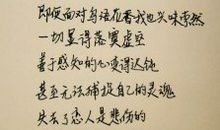 即便面对鸟语花香我也索味索然
一切显得落寞虚空
善于感知的心变得迟钝
甚至无法捕捉自己的灵魂
失去了恋人是悲伤的